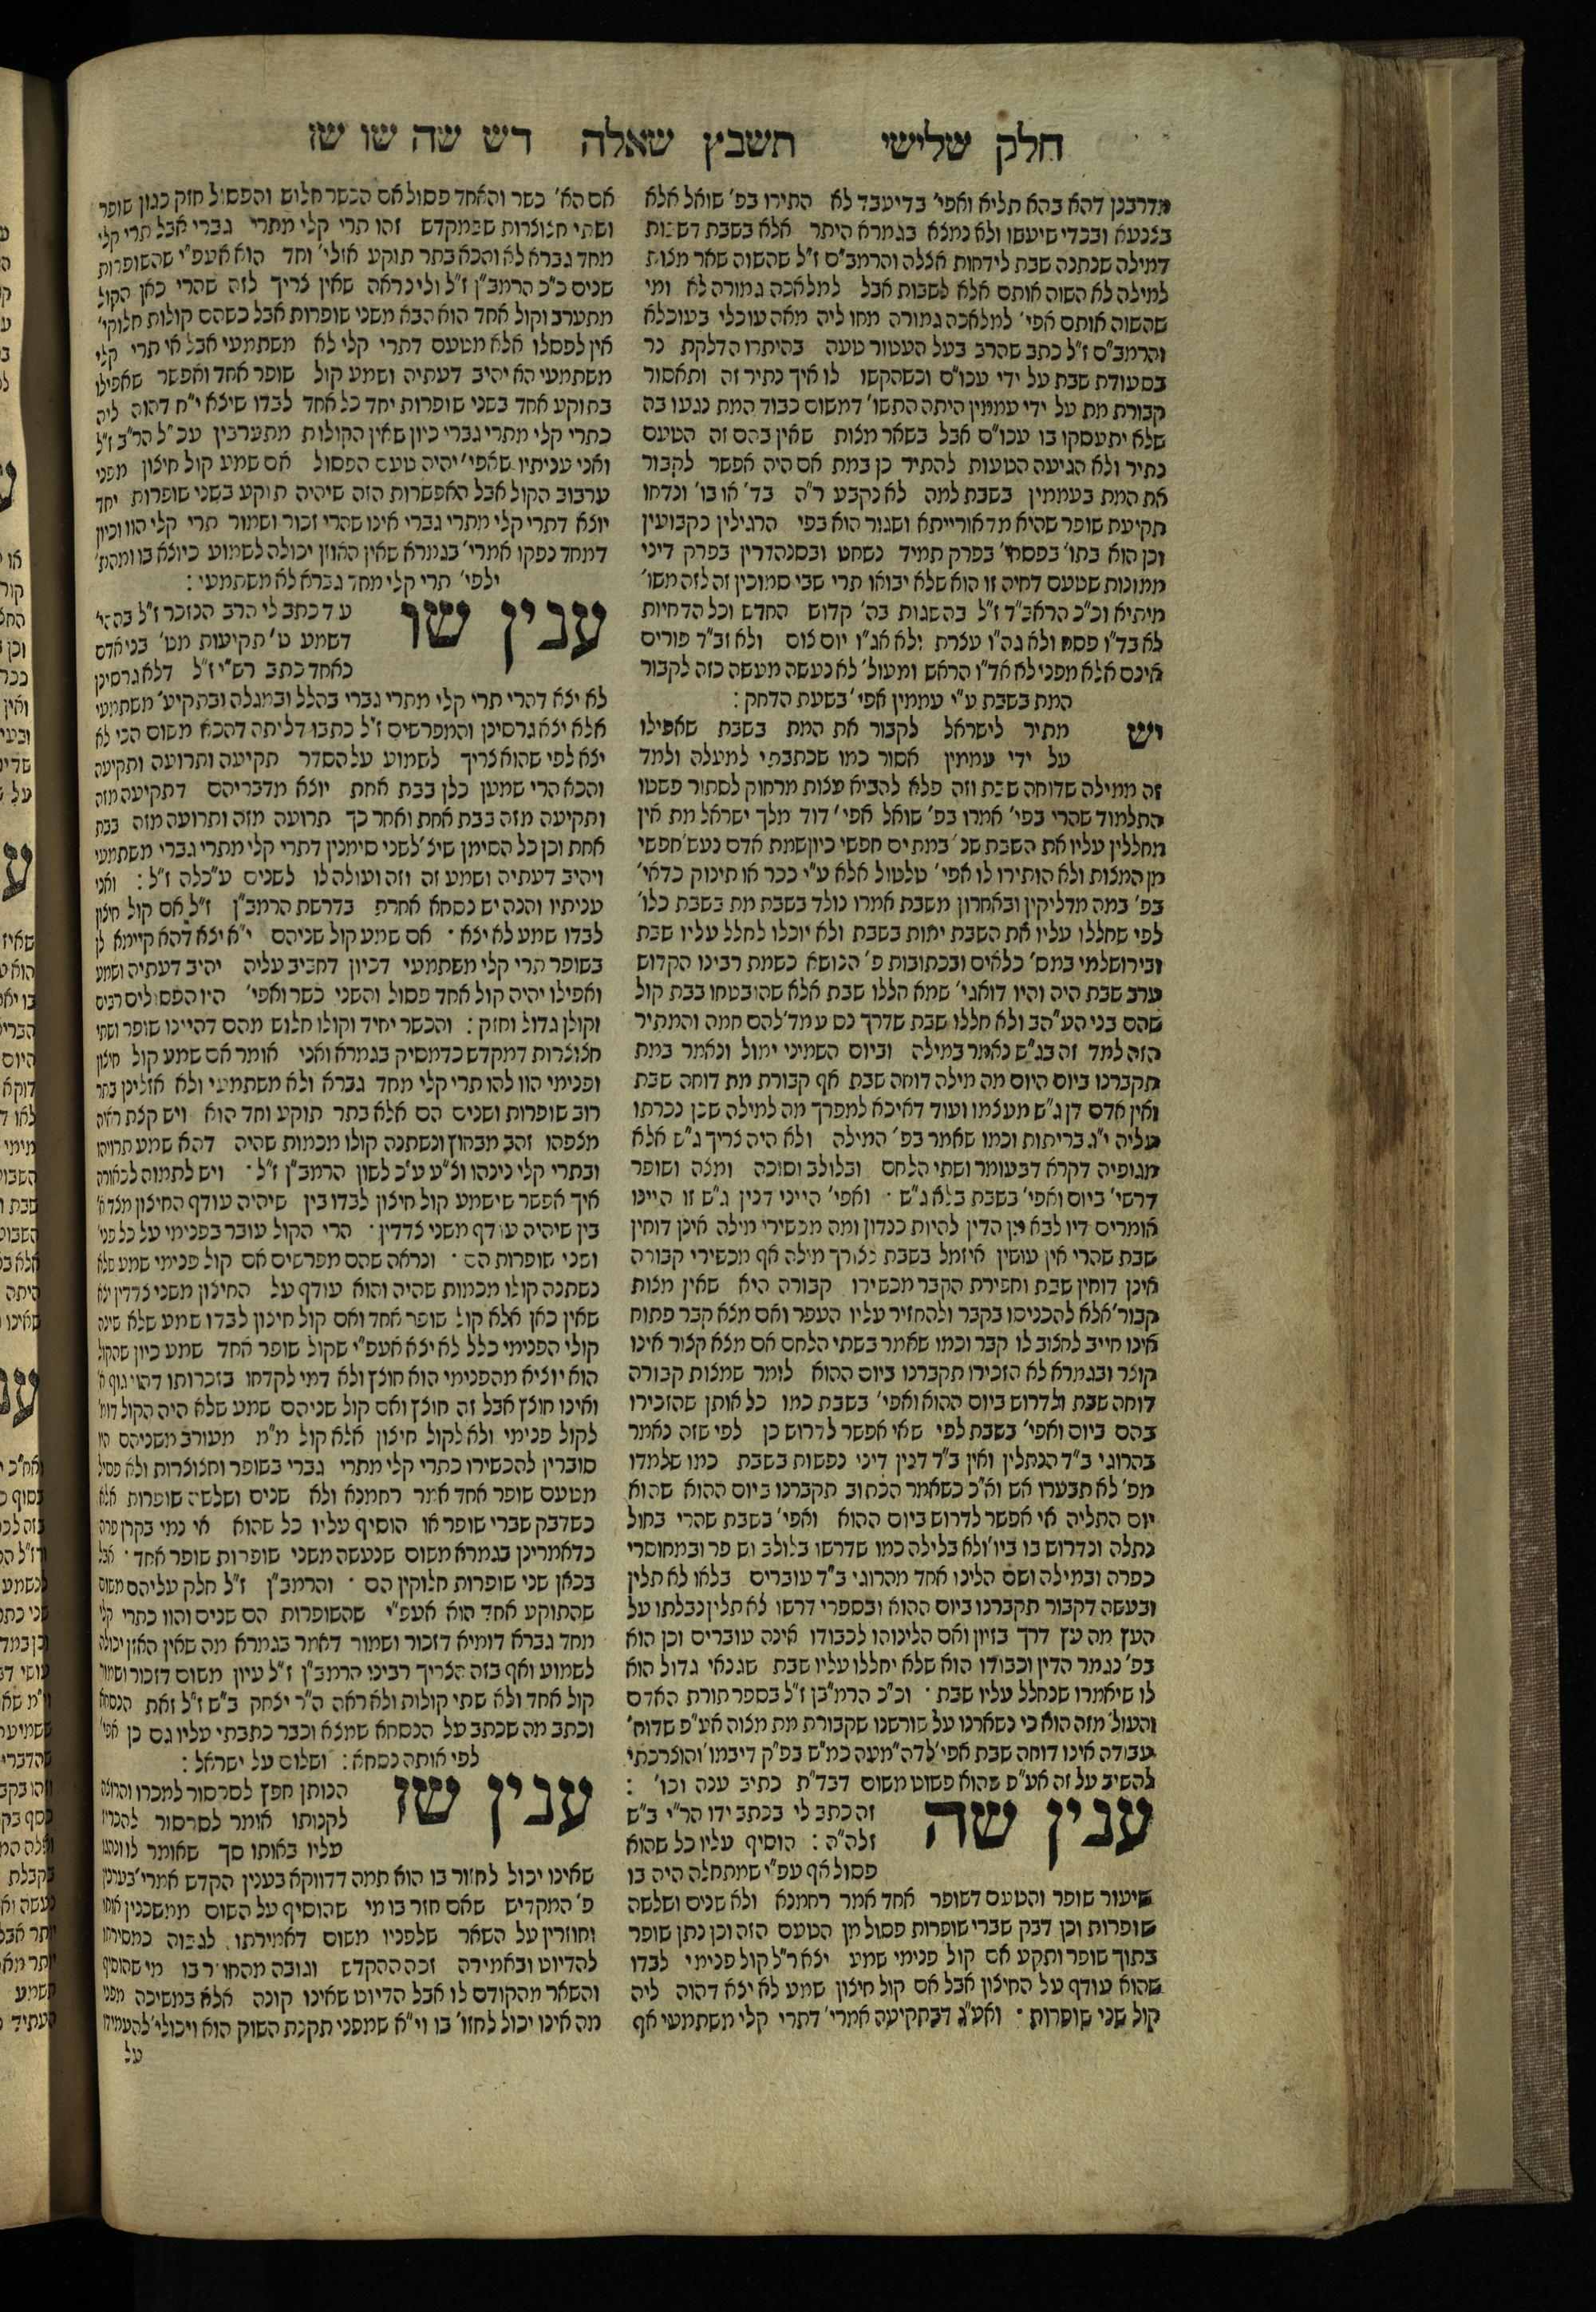 חלק שלישי תשבץ שאלה דש שה שו שז
מדרבנן דהא בהא תליא ואפי' בדיעבד לא התירו בפ' שואל אלא
בצנעא ובכדי שיעשו ולא נמצא בגמרא היתר אלא בשבת דשבות
דמילה שנתנה שבת לידחות אצלה והרמב"ם ז"ל שהשוה שאר מצות
למילה לא השוה אותם אלא לשבות אבל למלאכה גמורה לא ומי
שהשוה אותם אפי' למלאכה גמורה מחו ליה מאה עוכלי בעוכלא
והרמב"ם ז"ל כתב שהרב בעל העטור טעה בהיתרו הדלקת נר
בסעודת שבת על ידי עכו"ם וכשהקשו לו איך נתיר זה ותאסור
קבורת מת על ידי עממין היתה התשו' דמשום כבוד המת נגעו בה
שלא יתעסקו בו עכו"ם אבל בשאר מצות שאין בהם זה הטעם
נתיר ולא הגיעה הטעות להתיר כן במת אם היה אפשר לקבור
את המת בעממין בשבת למה לא נקבע ר"ה בד' או בו' ונדחו
תקיעת שופר שהיא מדאורייתא ושגור הוא בפי הרגילין בקבועין
וכן הוא בתו' בפסחי' בפרק תמיד נשחט ובסנהדרין בפרק דיני
ממונות שטעם דחיה זו הוא שלא יבואו תרי שבי סמוכין זה לזה משו'
מיתיא וכ"כ הראב"ד ז"ל בהשגות בה' קדוש החדש וכל הדחיות
לא בד"ו פסח ולא גה"ו עצרת ולא אג"ו יום צום ולא זב"ד פורים
אינם אלא מפני לא אד"ו הראש ומעול' לא נעשה מעשה כזה לקבור
המת בשבת ע"י עממין אפי' בשעת הדחק :
יש מתיר לישראל לקבור את המת בשבת שאפילו
על ידי עממין אסור כמו שכתבתי למעלה ולמד
זה ממילה שדוחה שבת וזה פלא להביא עצות מרחוק לסתור פשטו
התלמוד שהרי בפי' אמרו בפ' שואל אפי' דוד מלך ישראל מת אין
מחללין עליו את השבת שנ' במתים חפשי כיון שמת אדם נעש' חפשי
מן המצות ולא הותירו לו אפי' טלטול אלא ע"י ככר או תינוק כדאי'
בפ' במה מדליקין ובאחרון משבת אמרו נולד בשבת מת בשבת כלו'
לפי שחללו עליו את השבת יאות בשבת ולא יוכלו לחלל עליו שבת
ובירושלמי במס' כלאים ובכתובות פ' הנושא כשמת רבינו הקדוש
ערב שבת היה והיו דואגי' שמא חללו שבת אלא שהובטחו בבת קול
שהם בני הע"הב ולא חללו שבת שדרך נס עמד להם חמה והמתיר
הזה למד זה בג"ש נאמר במילה וביום השמיני ימול ונאמר במת
תקברנו ביום היום מה מילה דוחה שבת אף קבורת מת דוחה שבת
ואין אדם דן ג"ש מעצמו ועוד דאיכא למפרך מה למילה שכן נכרתו
עליה י"ג בריתות וכמו שאמר בפ' המילה ולא היה צריך ג"ש אלא
מגופיה דקרא דבעומר ושתי הלחם ובלולב וסוכה ומצה ושופר
דרשי' ביום ואפי' בשבת בלא ג"ש · ואפי' הייני דנין ג"ש זו היינו
אומרים דיו לבא מן הדין להיות כנדון ומה מכשירי מילה אינן דוחין
שבת שהרי אין עושין איזמל בשבת לצורך מילה אף מכשירי קבורה
אינן דוחין שבת וחפירת הקבר מכשירי קבורה היא שאין מצות
קבור' אלא להכניסו בקבר ולהחזיר עליו העפר ואם מצא קבר פתוח
אינו חייב לחצוב לו קבר וכמו שאמר בשתי הלחם אם מצא קצור אינו
קוצר ובגמרא לא הזכירו תקברנו ביום ההוא לומר שמצות קבורה
דוחה שבת ולדרוש ביום ההוא ואפי' בשבת כמו כל אותן שהזכירו
בהם ביום ואפי' בשבת לפי שאי אפשר לדרוש כן לפי שזה נאמר
בהרוגי ב"ד הנתלין ואין ב"ד דנין דיני נפשות בשבת כמו שלמדו
מפ' לא תבערו אש וא"כ כשאמר הכתוב תקברנו ביום ההוא שהוא
יום התליה אי אפשר לדרוש ביום ההוא ואפי' בשבת שהרי בחול
נתלה ונדרוש בו ביו' ולא בלילה כמו שדרשו בלולב ושופר ובמחוסרי
כפרה ובמילה ושם הלינו אחד מהרוגי ב"ד עוברים בלאו לא תלין
ובעשה דקבור תקברנו ביום ההוא ובספרי דרשו לא תלין נבלתו על
העץ מה עץ דרך בזיון ואם הלינוהו לכבודו אינה עוברים וכן הוא
בפ' נגמר הדין וכבודו הוא שלא יחללו עליו שבת שגנאי גדול הוא
לו שיאמרו שנחלל עליו שבת · וכ"כ הרמ"בן ז"ל בספר תורת האדם
והעול' מזה הוא כי נשארנו על שורשנו שקבורת מת מצוה אע"פ שדוח'
עבודה אינו דוחה שבת אפי' לדה"מעה כמ"ש בפ"ק דיבמו' והוצרכתי
להשיב על זה אע"פ שהוא פשוט משום דבד"ת כתיב ענה וכו' :
ענין שה זה כתב לי בכתב ידו הר"י ב"ש
זלה"ה : הוסיף עליו כל שהוא
פסול אף עפ"י שמתחלה היה בו
שיעור שופר והטעם דשופר אחד אמר רחמנא ולא שנים ושלשה
שופרות וכן דבק שברי שופרות פסול מן הטעם הזה וכן נתן שופר
בתוך שופר ותקע אם קול פנימי שמע יצא ר"ל קול פנימי לבדו
שהוא עודף על החיצון אבל אם קול חיצון שמע לא יצא דהוה ליה
קול שני שופרות · ואע"ג דבתקיעה אמרי' דתרי קלי משתמעי אף
אם הא' כשר והאחד פסול אם הכשר חלוש והפסול חזק כגון שופר
ושתי חצוצרות שבמקדש זהו תרי קלי מתרי גברי אבל תרי קלי
מחד גברא לא והכא בתר תוקע אזלי' וחד הוא אעפ"י שהשופרות
שנים כ"כ הרמב"ן ז"ל ולי נראה שאין צריך לזה שהרי כאן הקול
מתערב וקול אחד הוא הבא משני שופרות אבל כשהם קולות חלוקי'
אין לפסלו אלא מטעם דתרי קלי לא משתמעי אבל אי תרי קלי
משתמעי הא יהיב דעתיה ושמע קול שופר אחד ואפשר שאפילו
בתוקע אחד בשני שופרות יחד כל אחד לבדו שיצא י"ח דהוה ליה
כתרי קלי מתרי גברי כיון שאין הקולות מתערבין עכ"ל הר"ב ז"ל
ואני עניתיו שאפי' יהיה טעם הפסול אם שמע קול חיצון מפני
ערבוב הקול אבל האפשרות הזה שיהיה תוקע בשני שופרות יחד
יוצא דתרי קלי מתרי גברי אינו שהרי זכור ושמור תרי קלי הוו וכיון
דמחד נפקו אמרי' בגמרא שאין האוזן יכולה לשמוע כיוצא בו ומהת'
ילפי' תרי קלי מחד גברא לא משתמעי :
ענין שו עוד כתב לי הרב הנזכר ז"ל בההי'
דשמע ט' תקיעות מט' בני אדם
כאחד כתב רש"י ז"ל דלא גרסינן
לא יצא דהרי תרי קלי מתרי גברי בהלל ובמגלה ובתקיע' משתמעי
אלא יצא גרסינן והמפרשים ז"ל כתבו דליתה דהכא משום הכי לא
יצא לפי שהוא צריך לשמוע על הסדר תקיעה ותרועה ותקיעה
והכא הרי שמען כלן בבת אחת יוצא מדבריהם דתקיעה מזה
ותקיעה מזה בבת אחת ואחר כך תרועה מזה ותרועה מזה בבת
אחת וכן כל הסימן שיצ' לשני סימנין דתרי קלי מתרי גברי משתמעי
ויהיב דעתיה ושמע זה וזה ועולה לו לשנים ע"כלה ז"ל : ואני
עניתיו והנה יש נסחא אחרת בדרשת הרמב"ן ז"ל אם קול חיצון
לבדו שמע לא יצא · אם שמע קול שניהם י"א יצא דהא קיימא לן
בשופר תרי קלי משתמעי דכיון דחביב עליה יהיב דעתיה ושמע
ואפילו יהיה קול אחד פסול והשני כשר ואפי' היו הפסולים רבים
וקולן גדול וחזק : והכשר יחיד וקולו חלוש מהם דהיינו שופר ושתי
חצוצרות דמקדש כדמסיק בגמרא ואני אומר אם שמע קול חיצון
ופנימי הוו להו תרי קלי מחד גברא ולא משתמעי ולא אזלינן בתר
רוב שופרות ושנים הם אלא בתר תוקע וחד הוא ויש קצת ראיה
מצפהו זהב מבחוץ ונשתנה קולו מכמות שהיה דהא שמע תרויהו
ובתרי קלי נינהו וצ"ע ע"כ לשון הרמב"ן ז"ל · ויש לתמוה לכאורה
איך אפשר שישמע קול חיצון לבדו בין שיהיה עודף החיצון מצד א'
בין שיהיה עודף משני צדדין · הרי הקול עובר בפנימי על כל פני'
ושני שופרות הם · ונראה שהם מפרשים אם קול פנימי שמע שלא
נשתנה קולו מכמות שהיה והוא עודף על החיצון משני צדדין יצא
שאין כאן אלא קול שופר אחד ואם קול חיצון לבדו שמע שלא שינה
קולי הפנימי כלל לא יצא אעפ"י שקול שופר אחד שמע כיון שהקול
הוא יוציא מהפנימי הוא חוצץ ולא דמי לקדחו בזכרותו דהוי גוף א'
ואינו חוצץ אבל זה חוצץ ואם קול שניהם שמע שלא היה הקול דומ'
לקול פנימי ולא לקול חיצון אלא קול מ"מ מעורב משניהם היו
סוברין להכשירו כתרי קלי מתרי גברי בשופר וחצוצרות ולא פסיל
מטעם שופר אחד אמר רחמנא ולא שנים ושלשה שופרות אלא
כשדבק שברי שופר או הוסיף עליו כל שהוא אי נמי בקרן פרה
כדאמרינן בגמרא משום שנעשה משני שופרות שופר אחד · אבל
בכאן שני שופרות חלוקין הם · והרמב"ן ז"ל חלק עליהם משום
שהתוקע אחד הוא אעפ"י שהשופרות הם שנים והוו כתרי קלי
מחד גברא דומיא דזכור ושמור דאמר בגמרא מה שאין האזן יכולה
לשמוע ואף בזה הצריך רבינו הרמב"ן ז"ל עיון משום דזכור ושמור
קול אחד ולא שתי קולות ולא ראה ה"ר יצחק ב"ש ז"ל זאת הנסחא
וכתב מה שכתב על הנסחא שמצא וכבר כתבתי עליו גם כן אפי'
לפי אותה נסחא : ושלום על ישראל :
ענין שז הנותן חפץ לסרסור למכרו והרוצה
לקנותו אומר לסרסור להכריז
עליו באותו סך שאומר לו ונהגו
שאינו יכול לחזור בו הוא תמה דדווקא בענין הקדש אמרי' בערכין
פ' המקדיש שאם חזר בו מי שהוסיף על השום ממשכנין אותו
וחוזרין על השאר שלפניו משום דאמירתו לגבוה כמסירתו
להדיוט ובאמירה זכה ההקדש וגובה מהחוזר בו מי שהוסיף
והשאר מהקודם לו אבל הדיוט שאינו קונה אלא במשיכה מפני
מה אינו יכול לחזו' בו וי"א שמפני תקנת השוק הוא ויכולי' להעמידו
על